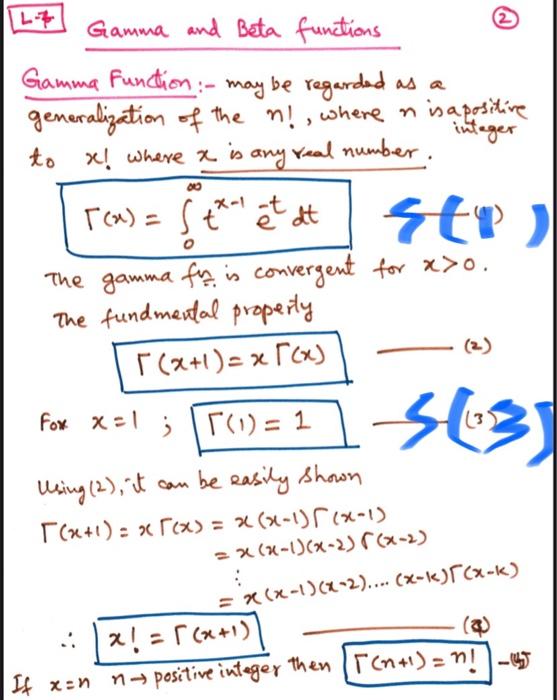 L-7 Gamma and Beta functions 2
Gamma Function:- may be regarded as a
generalization of the n!, where n is a positive
integer
to x! where x is any real number.
Γ(x) = ∫₀^∞ t^{x-1} e^{-t} dt —(1) S(1)
The gamma fn. is convergent for x>0.
The fundmental property
Γ(x+1) = x Γ(x) —— (2)
For x=1 ; Γ(1) = 1 —(3) S(3)
Using (2), it can be easily shown
Γ(x+1) = x Γ(x) = x(x-1)Γ(x-1)
= x(x-1)(x-2)Γ(x-2)
⋮
= x(x-1)(x-2)....(x-k)Γ(x-k)
∴ x! = Γ(x+1) —— (4)
If x=n n→ positive integer then Γ(n+1) = n! —